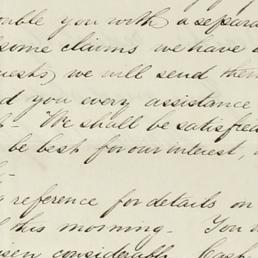 able you with a separa
some claims we have
uests, we will send them
d you every assistance
We shall be satisfied
be best for our interest,
reference for details on
this morning. You
isen considerably Cash